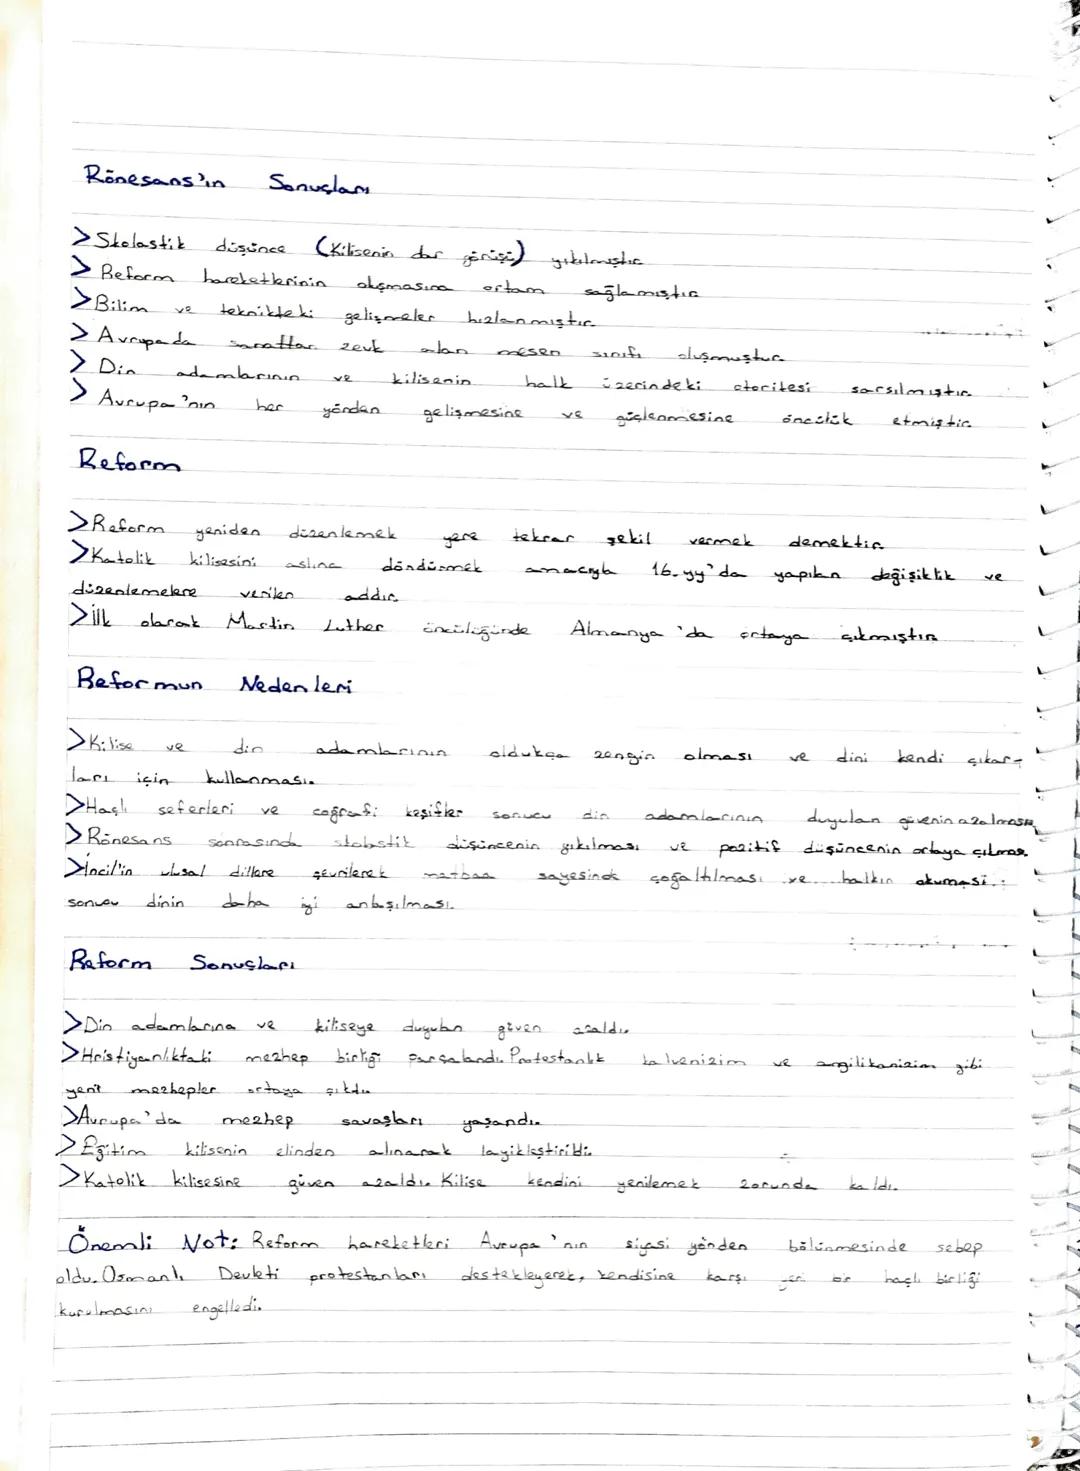 Rönesans'ın Sonuçları
>Skolastik düşünce (Kilisenin dar görüşü) yıkılmıştır
> Reform hareketlerinin oluşmasına ortam sağlamıştır
>Bilim ve teknikteki gelişmeler hızlanmıştır
> Avrupada sanattan zevk alan mesen sınıfı oluşmuştur
> Din adamlarının ve kilisenin halk üzerindeki otoritesi sarsılmıştır
> Avrupa'nın her yönden gelişmesine ve güçlenmesine öncülük etmiştir
Reform
>Reform yeniden düzenlemek yere tekrar şekil vermek demektir
>Katolik kilisesini aslına döndürmek amacıyla 16.yy'da yapılan değişiklik ve
düzenlemelere verilen addır
>İlk olarak Martin Luther öncülüğünde Almanya'da ortaya çıkmıştır
Reformun Nedenleri
>Kilise ve din adamlarının oldukça zengin olması ve dini kendi çıkar-
ları için kullanması.
>Haçlı seferleri ve coğrafi keşifler sonucu din adamlarının duyulan güvenin azalması
>Rönesans sonrasında skolastik düşüncenin yıkılması ve pozitif düşüncenin ortaya çıkması
>İncil'in ulusal dillere çevrilerek matbaa sayesinde çoğaltılması ve halkın okuması
sonucu dinin daha iyi anlaşılması.
Reform Sonuçları
>Din adamlarına ve kiliseye duyulan güven azaldı.
>Hristiyanlıktaki mezhep birliği parçalandı. Protestanlık kalvenizim ve angilikanizim gibi
yeni mezhepler ortaya çıktı.
>Avrupa'da mezhep savaşları yaşandı.
>Eğitim kilisenin elinden alınarak layikleştirildi.
>Katolik kilisesine güven azaldı. Kilise kendini yenilemek zorunda kaldı.
Önemli Not: Reform hareketleri Avrupa'nın siyasi yönden bölünmesinde sebep
oldu. Osmanlı Devleti protestanları destekleyerek, kendisine karşı yeni bir haçlı birliği
kurulmasını engelledi.